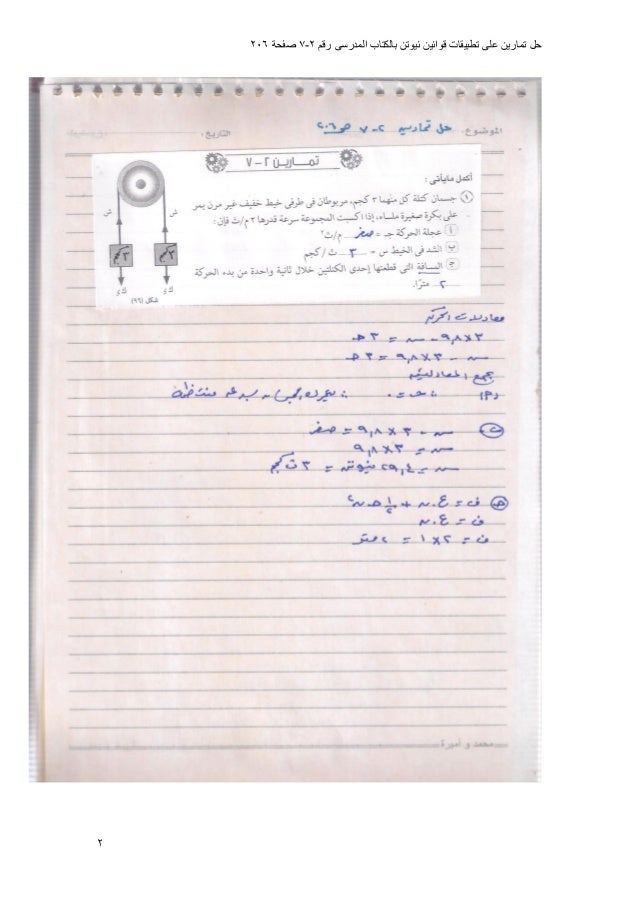 حل تمارين على تطبيقات قوانين نيوتن بالكتاب المدرسى رقم ٢-٧ صفحة ٢٠٦
الموضوع: حل تمارين ٢-٧ ص ٢٠٦ التاريخ:
تمـــارين ٢ - ٧
أكمل مايأتى:
١ جسمان كتلة كل منهما ٣ كجم، مربوطان فى طرفى خيط خفيف غير مرن يمر
على بكرة صغيرة ملساء، إذا اكسبت المجموعة سرعة قدرها ٢ م/ث فإن:
أ عجلة الحركة جـ = صفر م/ث٢
ب الشد فى الخيط س = ٣ ث/كجم
ج المسافة التى قطعتها إحدى الكتلتين خلال ثانية واحدة من بدء الحركة
٢ مترًا.
ش ش
٣كجم ٣كجم
ك ى ك ى
شكل (٩٦)
معادلات الحركة
٣×٩,٨ - س = ٣ حـ
س - ٣×٩,٨ = ٣ حـ
بجمع المعادلتين
(أ) ∴ حـ = ٠ ∴ المجموعة منتظمة
ب س - ٣×٩,٨ = صفر
س = ٣×٩,٨
س = ٢٩,٤ نيوتن = ٣ ث كجم
ج ف = ع.ن + ١/٢ حـ ن٢
ف = ع.ن
ف = ٢×١ = ٢ متر
محمد و أميرة
٢